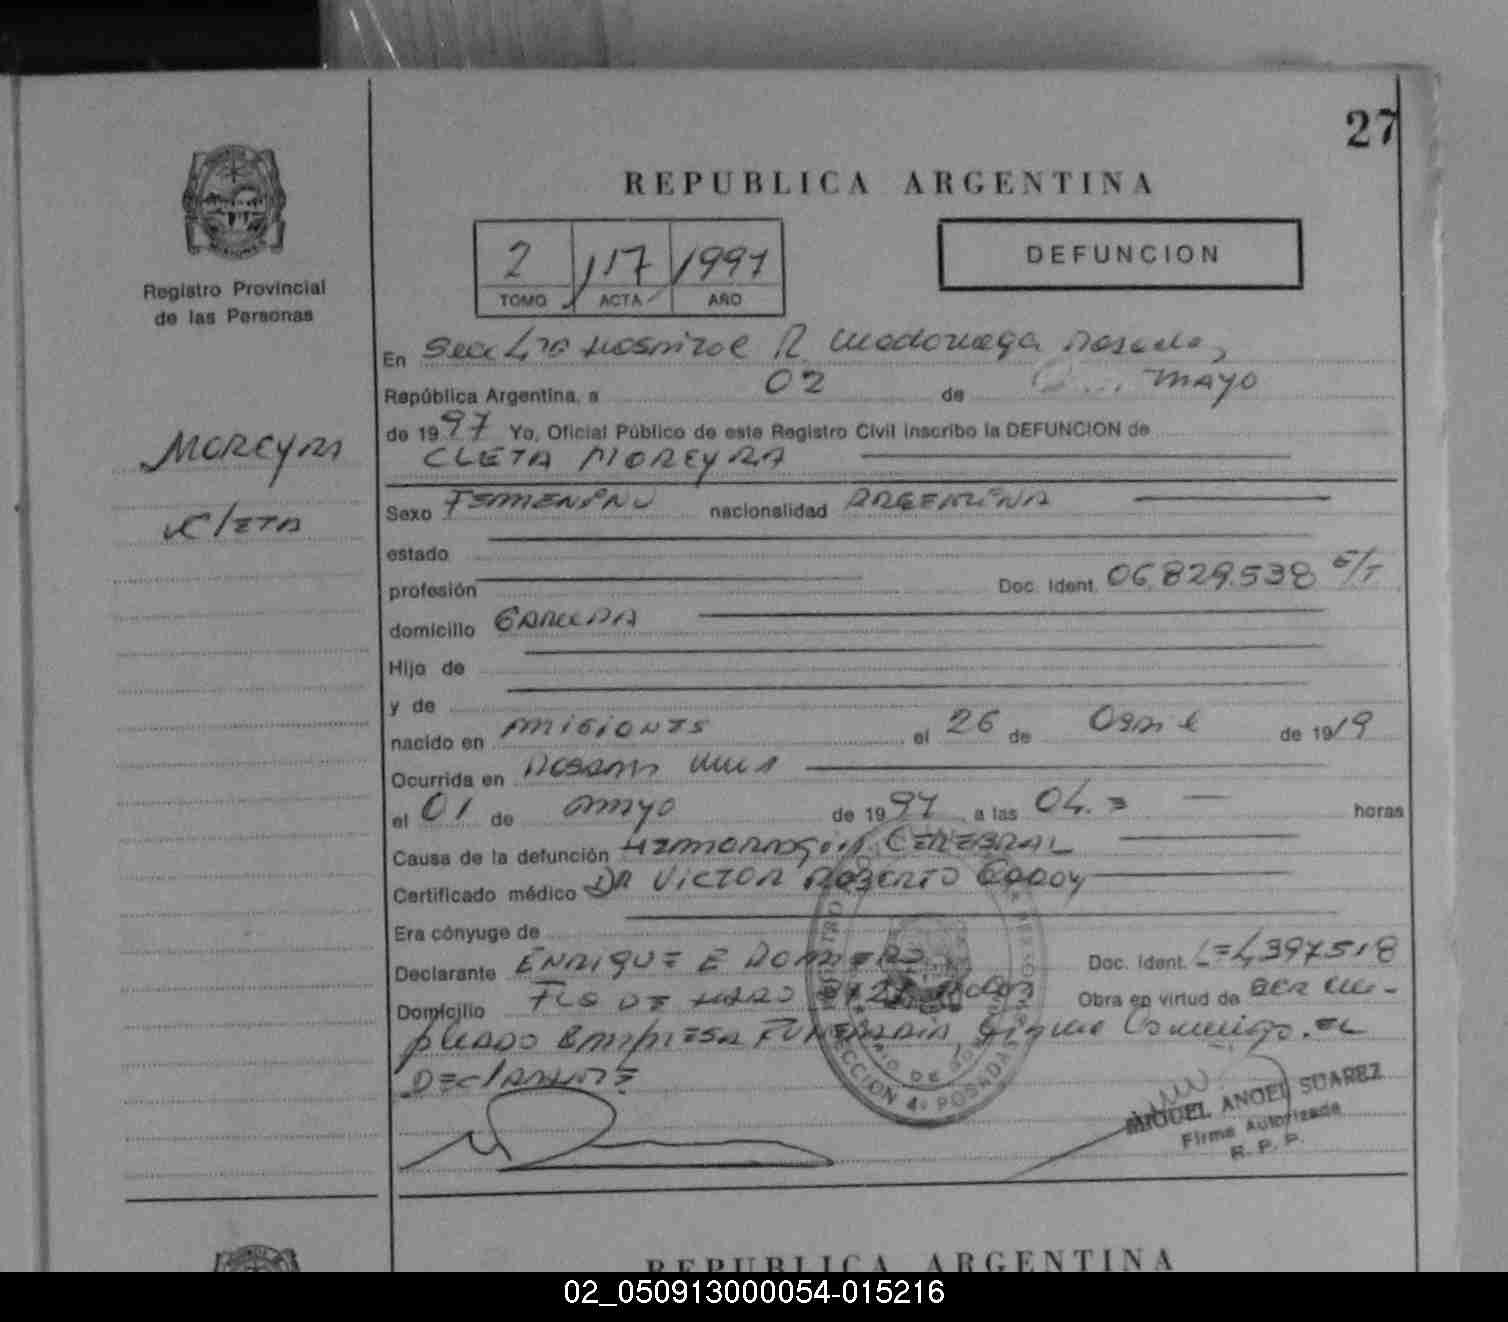 27
REPUBLICA ARGENTINA
Registro Provincial
de las Personas
2 117 1997
TOMO ACTA AÑO
DEFUNCION
En Secc 4ta Hospital R Madariaga Posadas,
República Argentina, a 02 de mayo
de 1997 Yo, Oficial Público de este Registro Civil inscribo la DEFUNCION de
CLETA MOREYRA
MOREYRA
CLETA
Sexo FEMENINO nacionalidad ARGENTINA
estado
profesión Doc. Ident. 06.829.538
domicilio GARUPA
Hijo de
y de
nacido en MISIONES el 26 de Abril de 1919
Ocurrida en Posadas
el 01 de mayo de 1997 a las 04. horas
Causa de la defunción HEMORRAGIA CEREBRAL
Certificado médico DR VICTOR ROBERTO GODOY
Era cónyuge de
Declarante ENRIQUE E Doc. Ident. 4397518
Domicilio FCO DE HARO Obra en virtud de ser em-
pleado EMPRESA FUNERARIA, firma conmigo. EL
DECLARANTE
SECCION 4ª POSADAS
MIGUEL ANGEL SUAREZ
Firma Autorizada
R. P. P.
REPUBLICA ARGENTINA
02_050913000054-015216